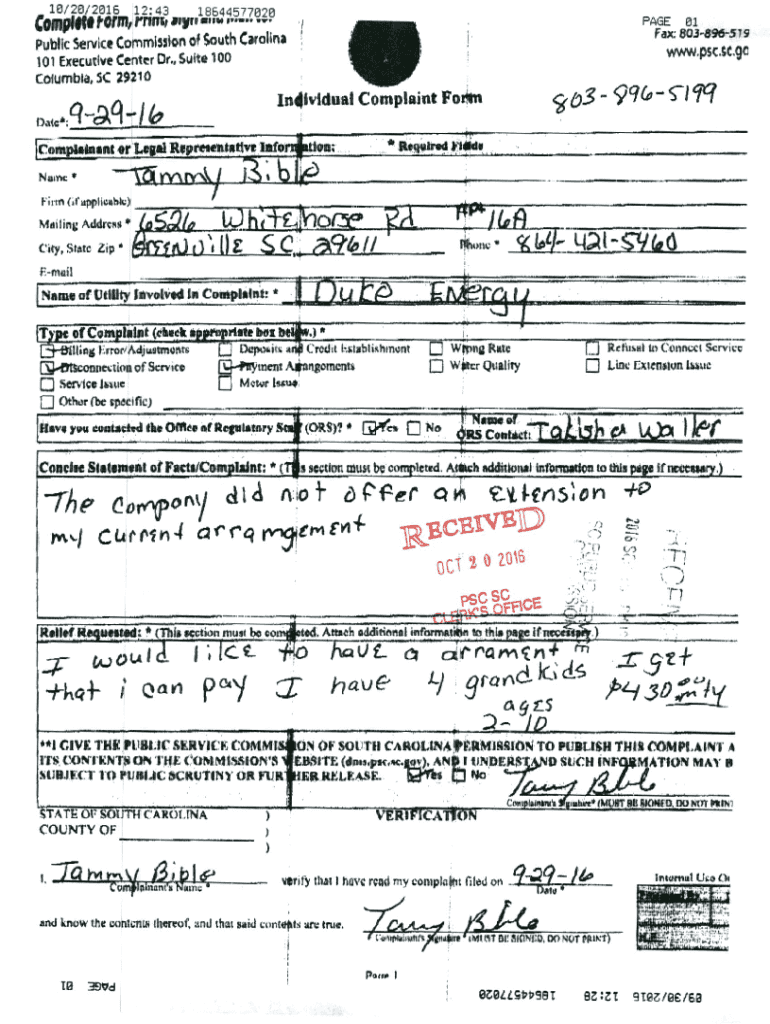 10/20/2016 12:43 18644577020 PAGE 01
Complete Form, Print, Sign and
Fax: 803-896-519
Public Service Commission of South Carolina
www.psc.sc.go
101 Executive Center Dr., Suite 100
Columbia, SC 29210
Individual Complaint Form
803-896-5199
Date*: 9-29-16
Complainant or Legal Representative Information: * Required Fields
Name * Tammy Bible
Firm (if applicable)
Mailing Address * 6526 Whitehorse Rd Apt 16A
City, State Zip * Greenville SC 29611 Phone * 864-421-5460
E-mail
Name of Utility Involved in Complaint: * Duke Energy
Type of Complaint (check appropriate box below.) *
Billing Error/Adjustments Deposits and Credit Establishment Wrong Rate Refusal to Connect Service
Disconnection of Service Payment Arrangements Water Quality Line Extension Issue
Service Issue Meter Issue
Other (be specific)
Have you contacted the Office of Regulatory Staff (ORS)? * Yes No Name of
ORS Contact: Takisha Waller
Concise Statement of Facts/Complaint: * (This section must be completed. Attach additional information to this page if necessary.)
The company did not offer an extension to
my current arramgement
RECEIVED
OCT 20 2016
PSC SC
CLERK'S OFFICE
Relief Requested: * (This section must be completed. Attach additional information to this page if necessary.)
I would like to have a arrament I get
that i can pay I have 4 grandkids $430
ages
2-10
**I GIVE THE PUBLIC SERVICE COMMISSION OF SOUTH CAROLINA PERMISSION TO PUBLISH THIS COMPLAINT A
ITS CONTENTS ON THE COMMISSION'S WEBSITE (dms.psc.sc.gov), AND I UNDERSTAND SUCH INFORMATION MAY B
SUBJECT TO PUBLIC SCRUTINY OR FURTHER RELEASE. Yes No
Complainant's Signature* (MUST BE SIGNED, DO NOT PRINT
STATE OF SOUTH CAROLINA ) VERIFICATION
COUNTY OF )
)
I, Tammy Bible verify that I have read my complaint filed on 9-29-16 Internal Use On
Complainant's Name * Date *
and know the contents thereof, and that said contents are true.
Complainant's Signature * (MUST BE SIGNED, DO NOT PRINT)
Page 1
PAGE 01 18644577020 12:28 09/30/2016